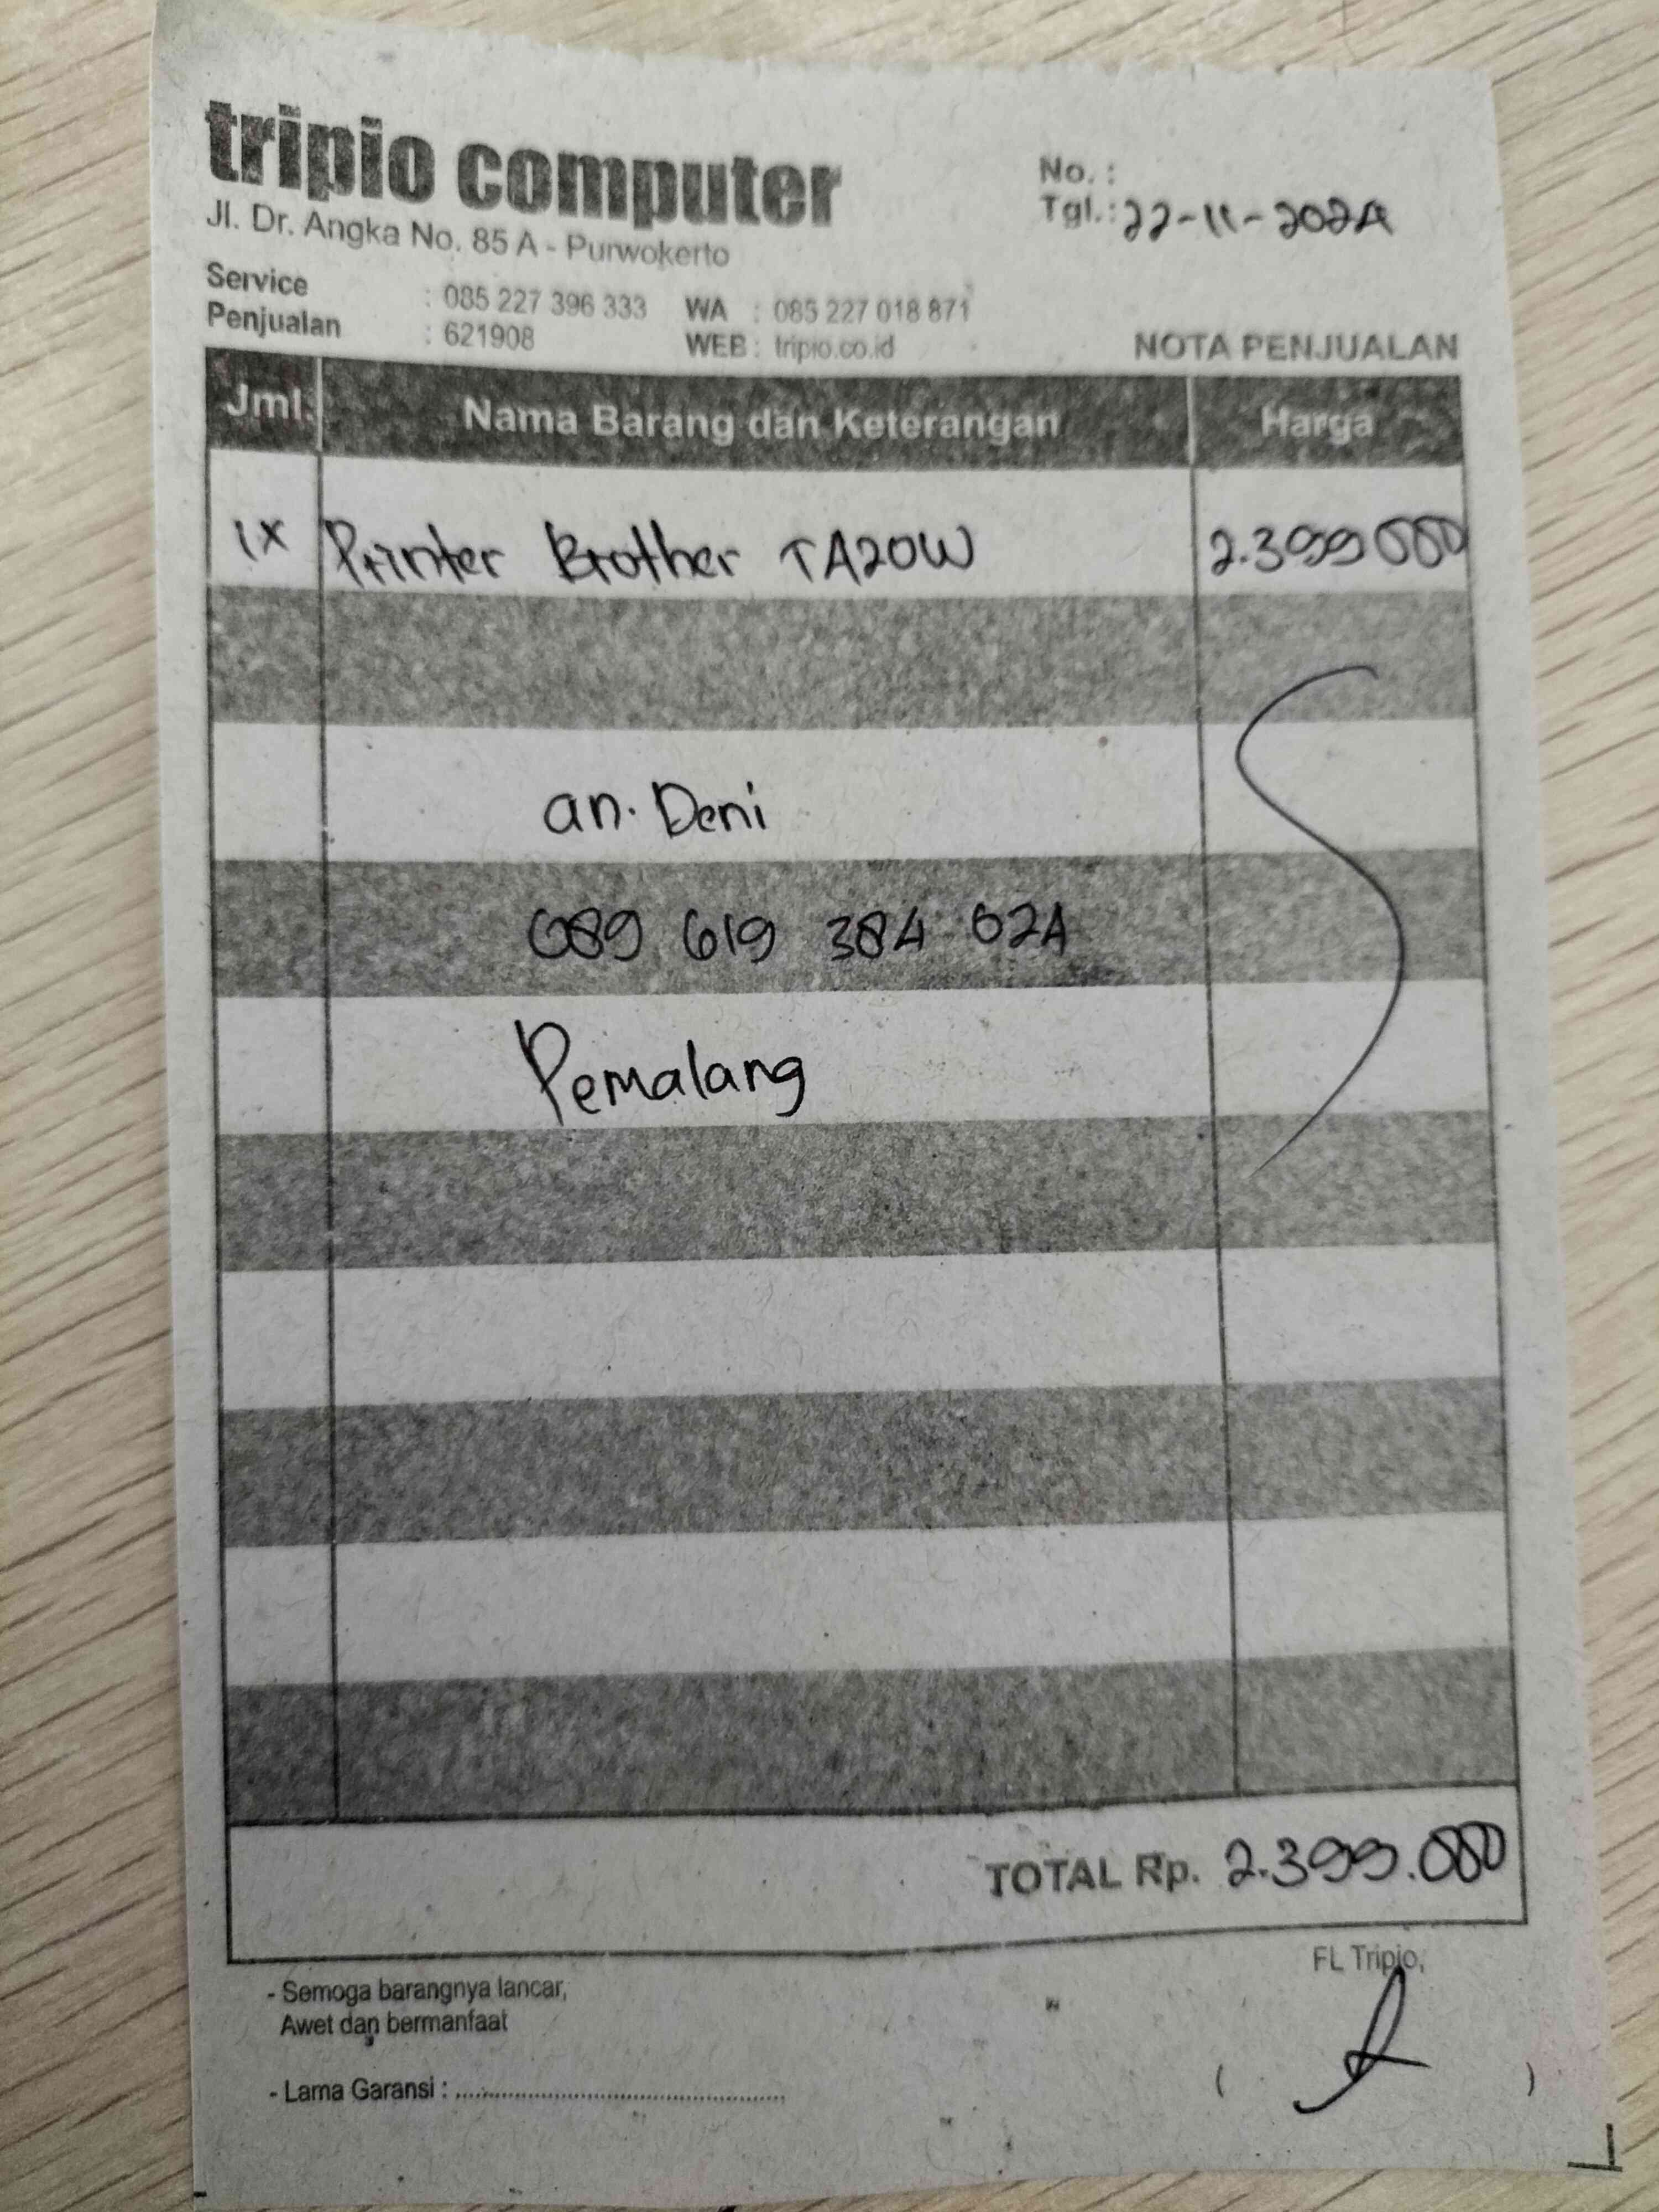 tripio computer
No. :
Jl. Dr. Angka No. 85 A - Purwokerto
Tgl. : 22-11-2024
Service : 085 227 396 333 WA : 085 227 018 871
Penjualan : 621908 WEB : tripio.co.id
NOTA PENJUALAN
Jml. Nama Barang dan Keterangan Harga
1x Printer Brother T420W 2.399 000
an. Deni
089 619 384 024
Pemalang
TOTAL Rp. 2.399.000
FL Tripio,
- Semoga barangnya lancar,
Awet dan bermanfaat
- Lama Garansi : ........................................
( )